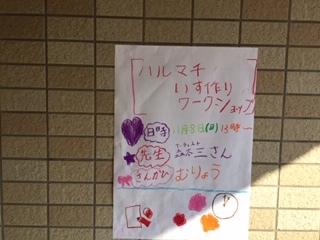 ハルマチ
いす作り
ワークショップ
日時 11月8日(日)13時〜
先生 森本三さん
さんかひ むりょう